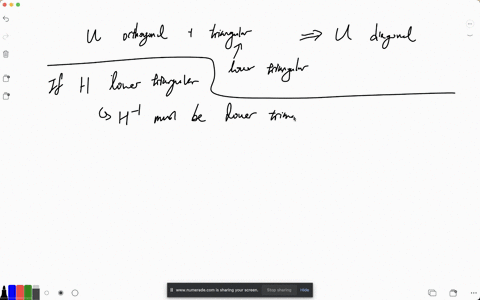 U orthogonal + triangular ⇒ U diagonal
lower triangular
If H lower triangular
↳ H⁻¹ must be lower triang
www.numerade.com is sharing your screen. Stop sharing Hide